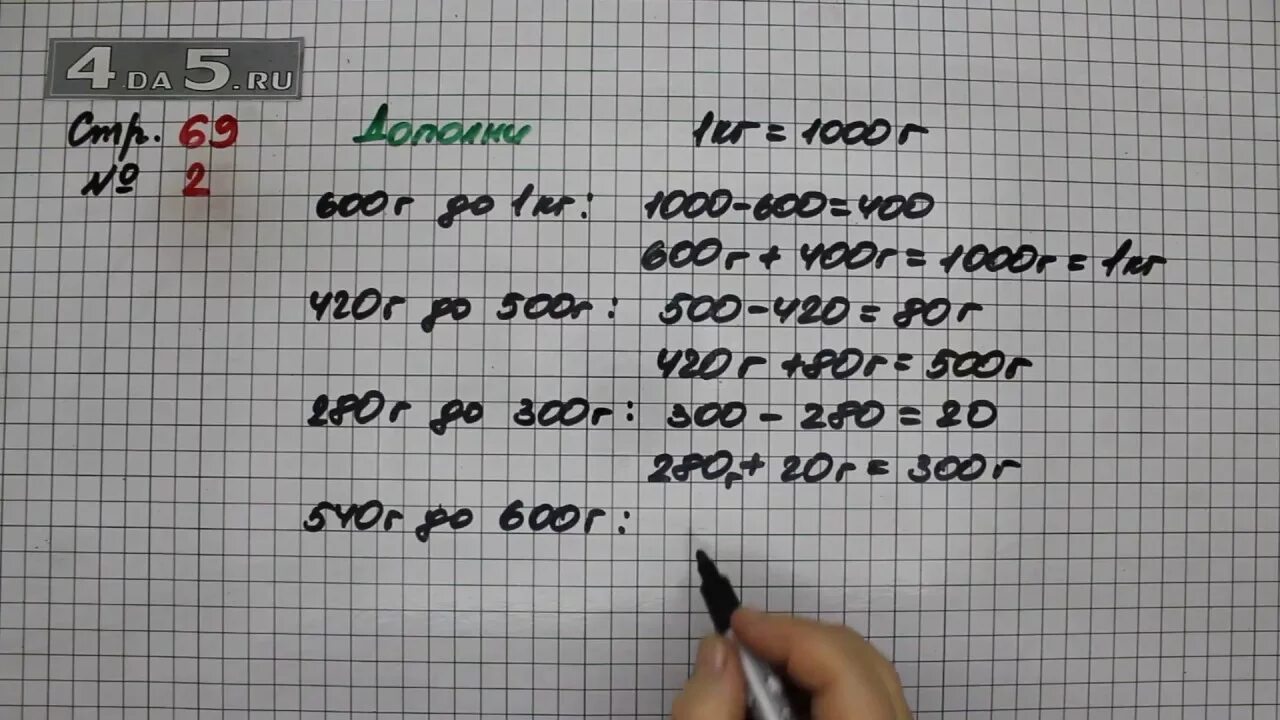 4.DA 5.RU
Стр. 69 Дополни 1кг = 1000г
№ 2
600г до 1кг: 1000-600=400
600г + 400г = 1000г = 1кг
420г до 500г: 500-420 = 80г
420г +80г = 500г
280г до 300г: 300 - 280 = 20
280г + 20г = 300г
540г до 600г: